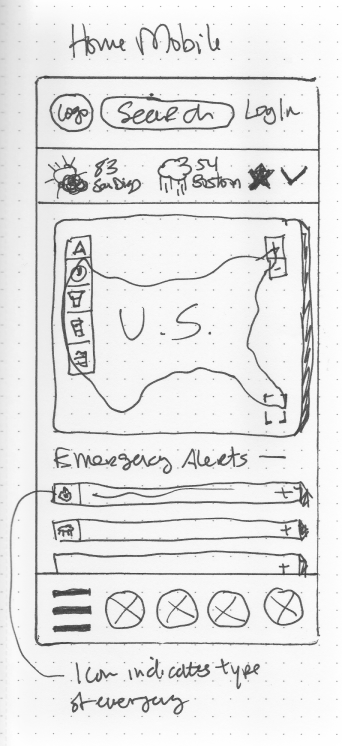 Home Mobile
Logo Search Log In
83 54
San Diego Boston
U.S.
+
-
Emergency Alerts —
+
+
+
Icon indicates type
of emergency